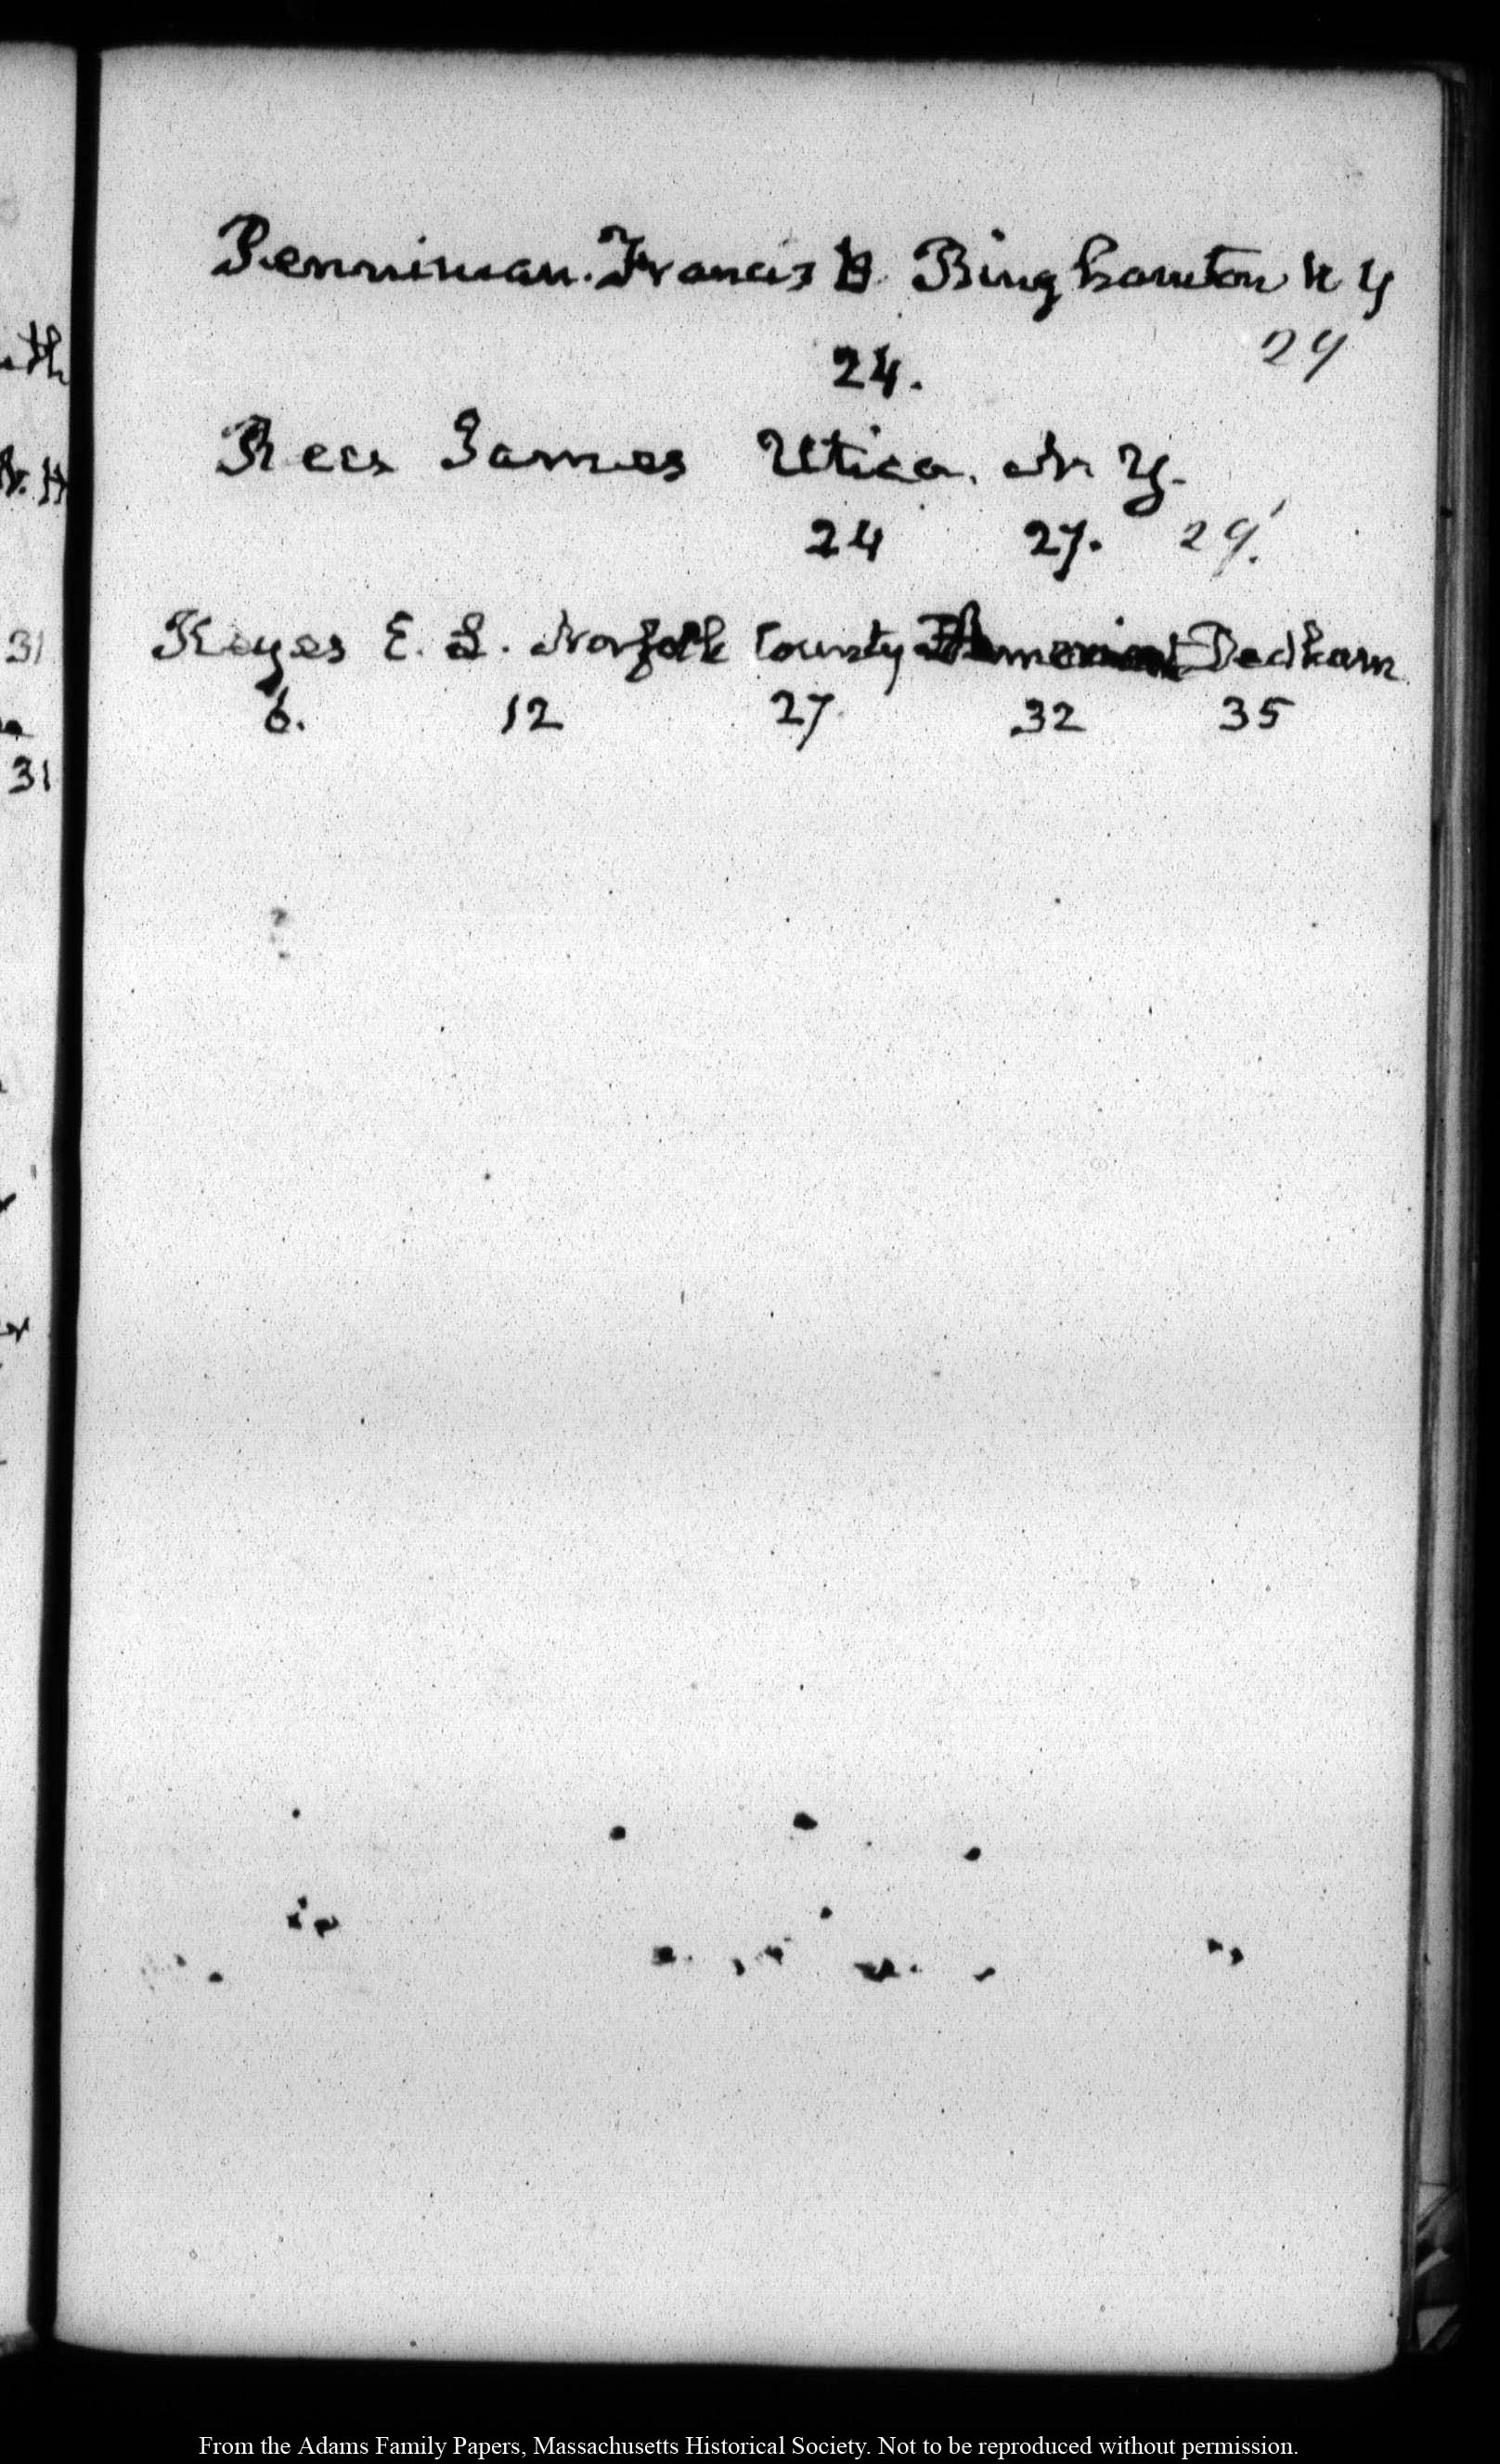 Penniman. Francis B. Binghamton N Y
24. 29
Rees James Utica. N. Y.
24 27. 29.
Keyes E. L. Norfolk County Dedham
6. 12 27 32 35
th
N. H
31
31
From the Adams Family Papers, Massachusetts Historical Society. Not to be reproduced without permission.